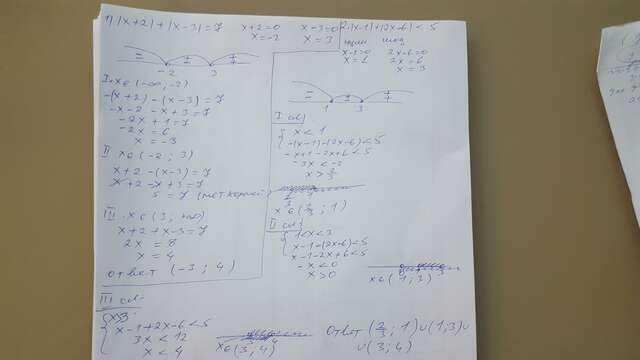 1) |x+2| + |x-3| = 7
x+2=0
x=-2
x-3=0
x=3
-2 3
I x∈(-∞; -2)
-(x+2) - (x-3) = 7
-x-2 -x+3 = 7
-2x+1=7
-2x=6
x=-3
II x∈(-2; 3)
x+2-(x-3)=7
x+2-x+3=7
5=7 (нет корней)
III x∈(3; +∞)
x+2+x-3=7
2x=8
x=4
ответ (-3; 4)
2. |x-1| + |2x-6| < 5
x-1=0
x=1
2x-6=0
2x=6
x=3
1 3
I сл)
{ x<1
-(x-1)-(2x-6)<5
-x+1-2x+6<5
-3x<-2
x>2/3
x∈(2/3; 1)
II сл)
{ 1<x<3
x-1-(2x-6)<5
x-1-2x+6<5
-x<0
x>0
x∈(1; 3)
III сл
{ x>3
x-1+2x-6<5
3x<12
x<4
x∈(3; 4)
Ответ (2/3; 1)∪(1;3)∪
∪(3; 4)